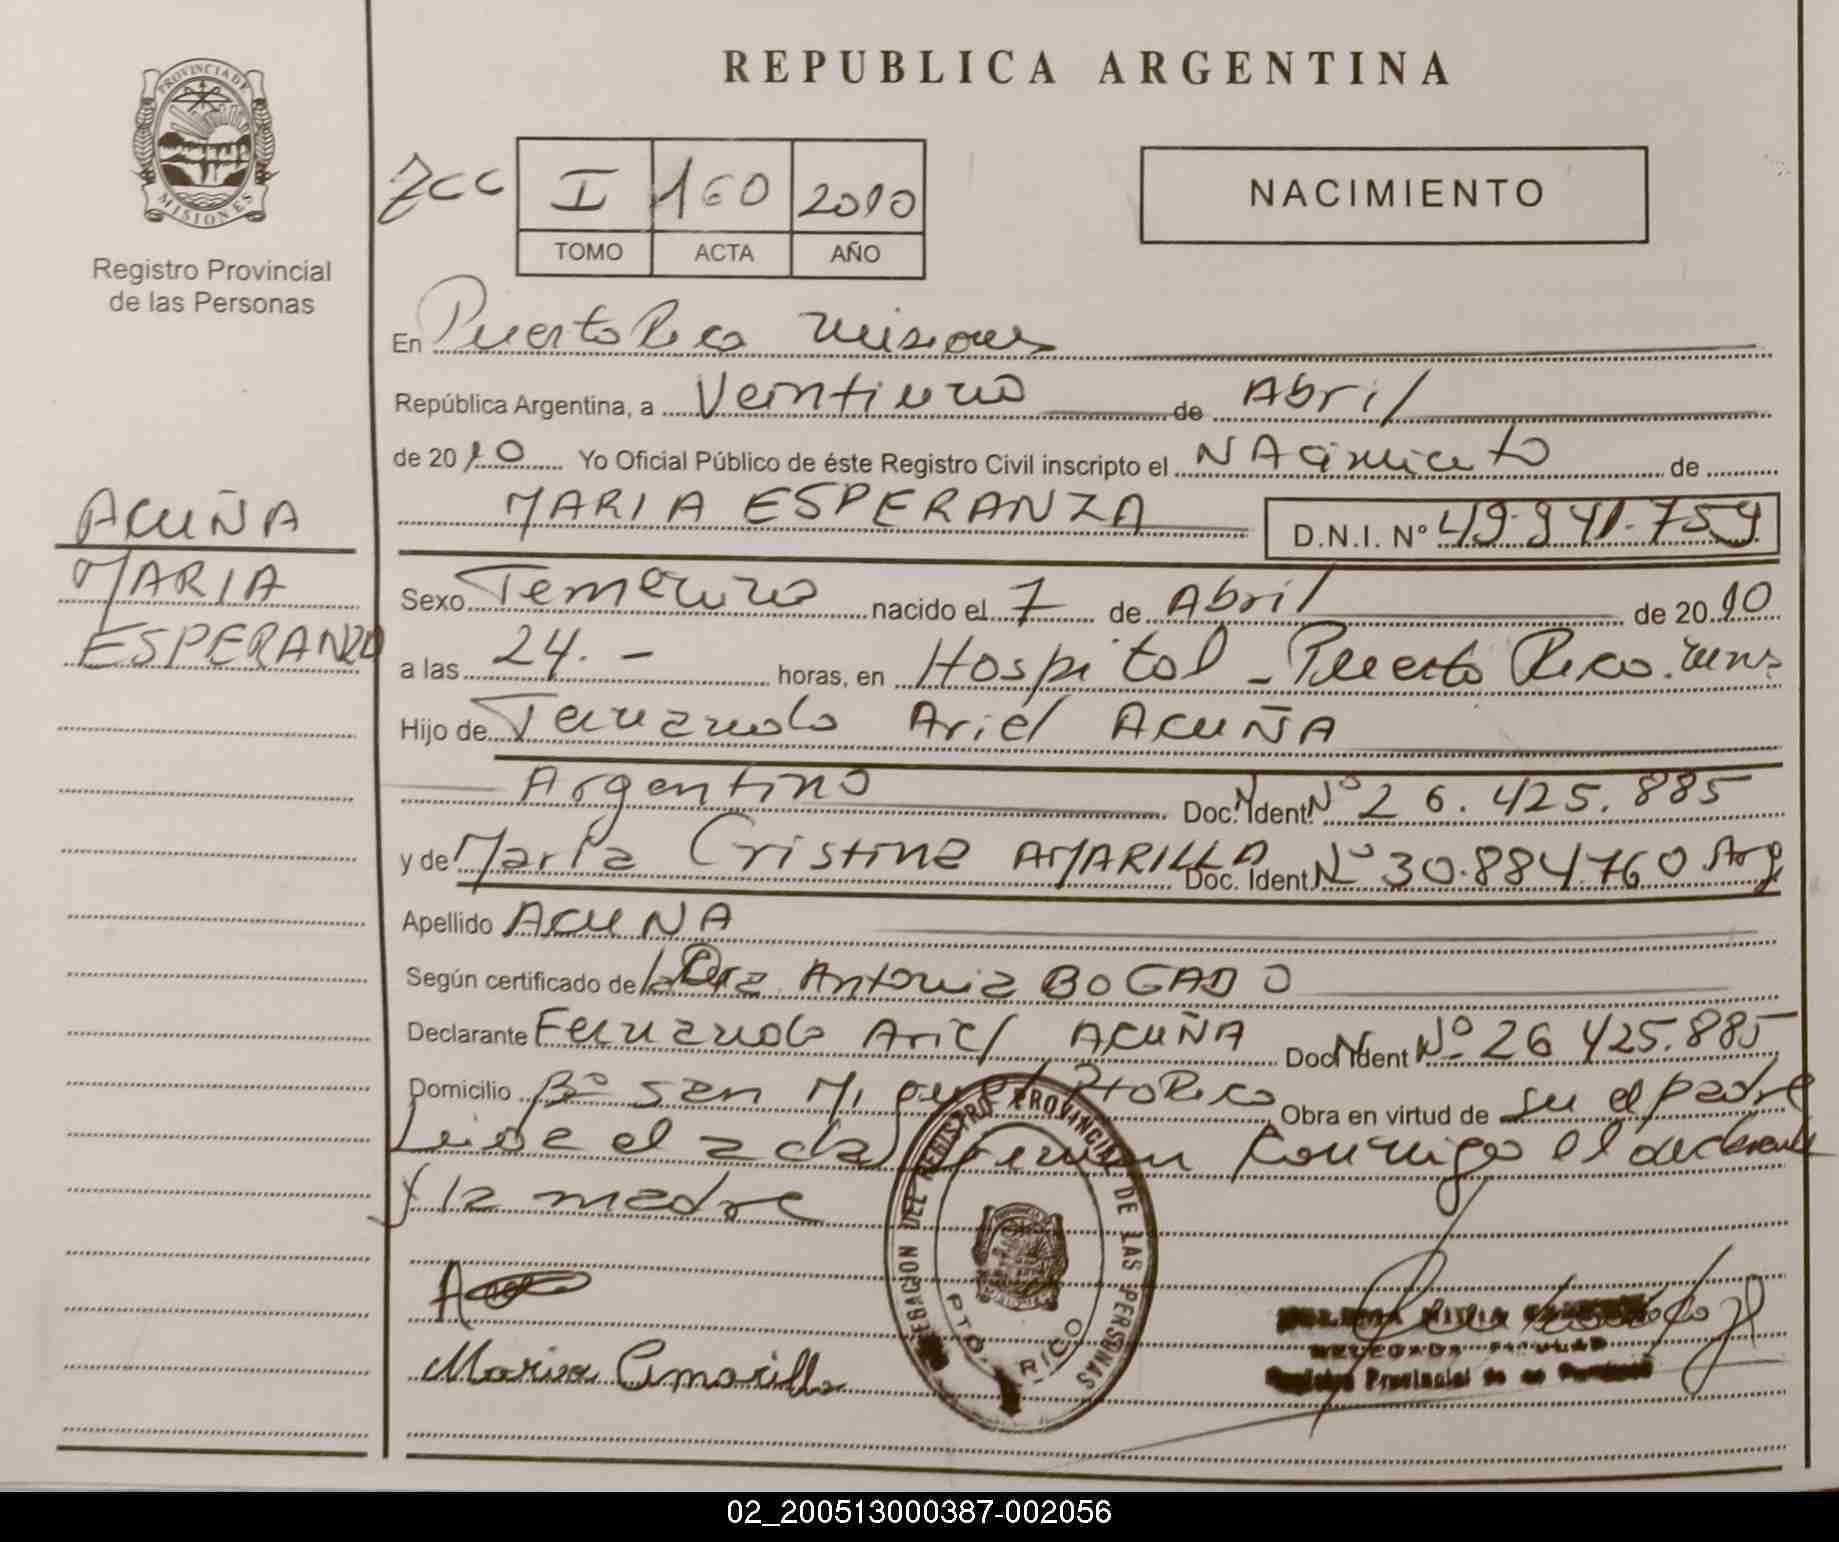 REPUBLICA ARGENTINA
PROVINCIA DE
MISIONES
Registro Provincial
de las Personas
I 160 2010
TOMO ACTA AÑO
NACIMIENTO
En Puerto Rico Misiones
República Argentina, a Veintiuno de Abril
de 2010 Yo Oficial Público de éste Registro Civil inscripto el NAcimiento de
MARIA ESPERANZA D.N.I. Nº 49.941.759
ACUÑA
MARIA
ESPERANZA
Sexo Femenino nacido el 7 de Abril de 2010
a las 24.- horas, en Hospital - Puerto Rico. Mns
Hijo de Fernando Ariel ACUÑA
Argentino Doc. Ident. Nº 26.425.885
y de María Cristina AMARILLA Doc. Ident Nº 30.884.760 Arg
Apellido ACUÑA
Según certificado de la Dra Antonia BOGADO
Declarante Fernando Ariel ACUÑA Doc. Ident Nº 26 425.885
Domicilio Bº San Miguel Pto Rico Obra en virtud de su el padre
Leida el acta firman conmigo el declarante
y la madre
DELEGACION DEL REGISTRO PROVINCIAL DE LAS PERSONAS
PTO. RICO
Maria Amarilla
DELEGADA TITULAR
Registro Provincial de las Personas
02_200513000387-002056